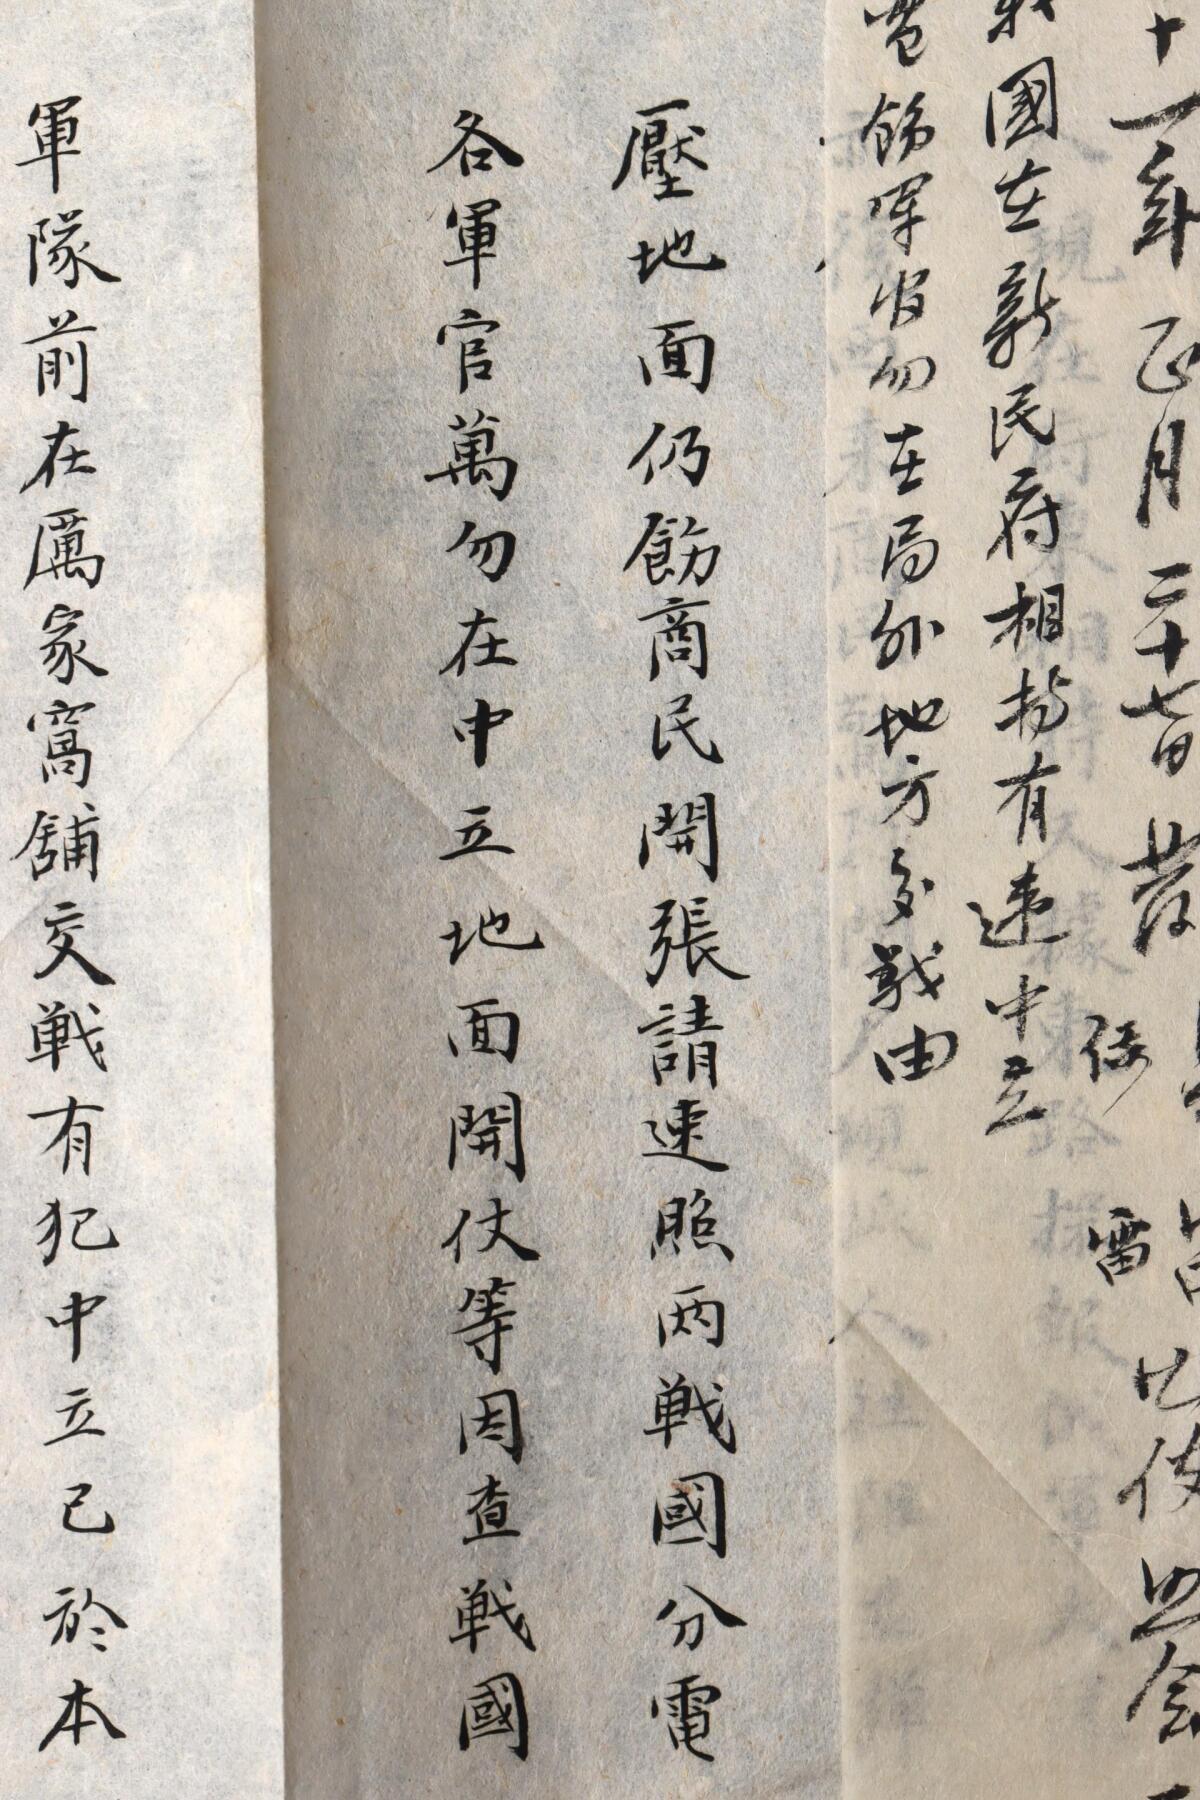 十一年正月二十七日發
國在新民府相持有違中立
電飭軍官勿在局外地方交戰由
壓地面仍飭商民開張請速照两戦國分電
各軍官萬勿在中立地面開仗等因查戦國
軍隊前在厲家窩舖交戦有犯中立已於本